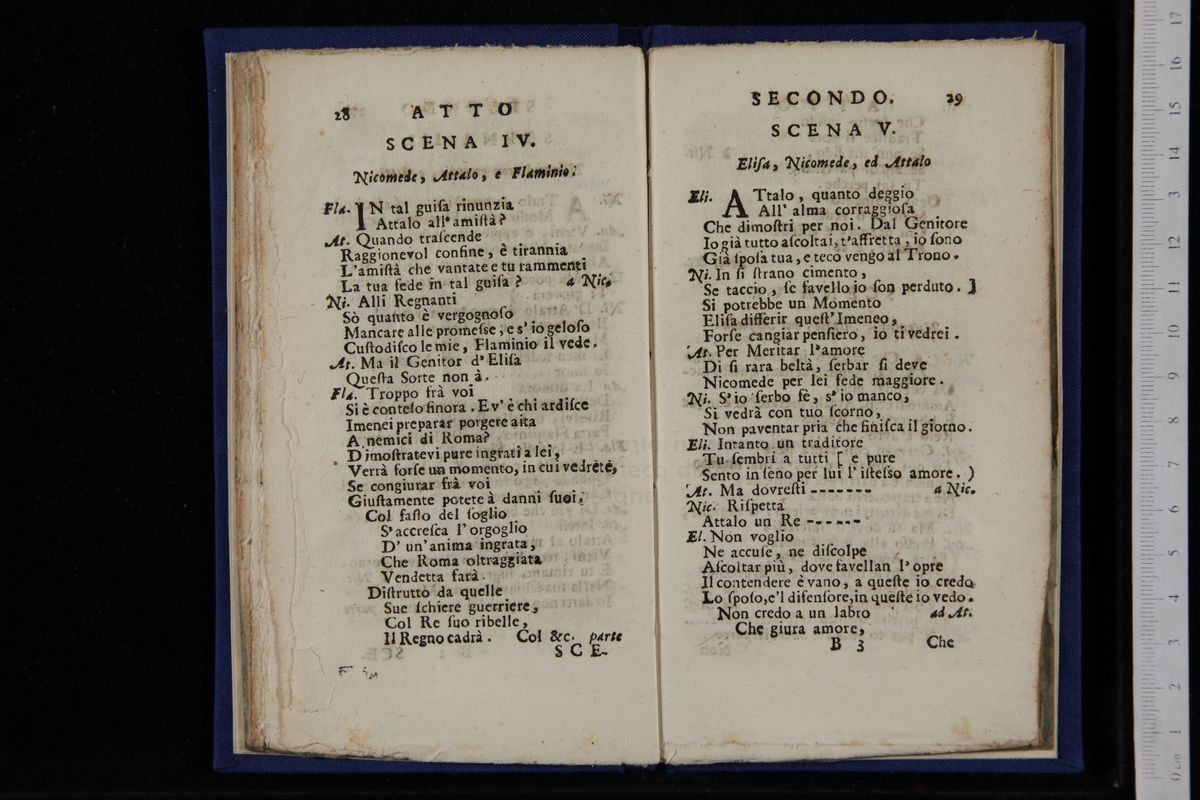 28 ATTO
SCENA IV.
Nicomede, Attalo, e Flaminio.
Fla. IN tal guiſa rinunzia
Attalo all'amiſtà?
At. Quando traſcende
Raggionevol confine, è tirannia
L'amiſtà che vantate e tu rammenti
La tua fede in tal guiſa? a Nic.
Ni. Alli Regnanti
Sò quanto è vergognoſo
Mancare alle promeſse, e s' io geloſo
Cuſtodiſco le mie, Flaminio il vede.
At. Ma il Genitor d' Eliſa
Queſta Sorte non à.
Fla. Troppo frà voi
Si è conteſo finora. Ev' è chi ardiſce
Imenei preparar porgere aita
A nemici di Roma?
Dimoſtratevi pure ingrati a lei,
Verrà forſe un momento, in cui vedrete,
Se congiurar frà voi
Giuſtamente potete à danni ſuoi.
Col faſto del ſoglio
S'accreſca l'orgoglio
D' un'anima ingrata,
Che Roma oltraggiata
Vendetta farà.
Diſtrutto da quelle
Sue ſchiere guerriere,
Col Re ſuo ribelle,
Il Regno cadrà. Col &c. parte
SCE-
SECONDO. 29
SCENA V.
Eliſa, Nicomede, ed Attalo
Eli. ATtalo, quanto deggio
All' alma corraggioſa
Che dimoſtri per noi. Dal Genitore
Io già tutto aſcoltai, t'affretta, io ſono
Già ſpoſa tua, e teco vengo al Trono.
Ni. In ſi ſtrano cimento,
Se taccio, ſe favello io ſon perduto. ]
Si potrebbe un Momento
Eliſa differir queſt' Imeneo,
Forſe cangiar penſiero, io ti vedrei.
At. Per Meritar l'amore
Di ſi rara beltà, ſerbar ſi deve
Nicomede per lei fede maggiore.
Ni. S' io ſerbo fè, s' io manco,
Si vedrà con tuo ſcorno,
Non paventar pria che finiſca il giorno.
Eli. Intanto un traditore
Tu ſembri a tutti [ e pure
Sento in ſeno per lui l' iſteſso amore. )
At. Ma dovreſti ------- a Nic.
Nic. Riſpetta
Attalo un Re ------
El. Non voglio
Ne accuſe, ne diſcolpe
Aſcoltar più, dove favellan l' opre
Il contendere è vano, a queſte io credo
Lo ſpoſo, e'l difenſore, in queſte io vedo.
Non credo a un labro ad At.
Che giura amore,
B 3 Che
17
16
15
14
13
12
11
10
9
8
7
6
5
4
3
2
1
0 cm